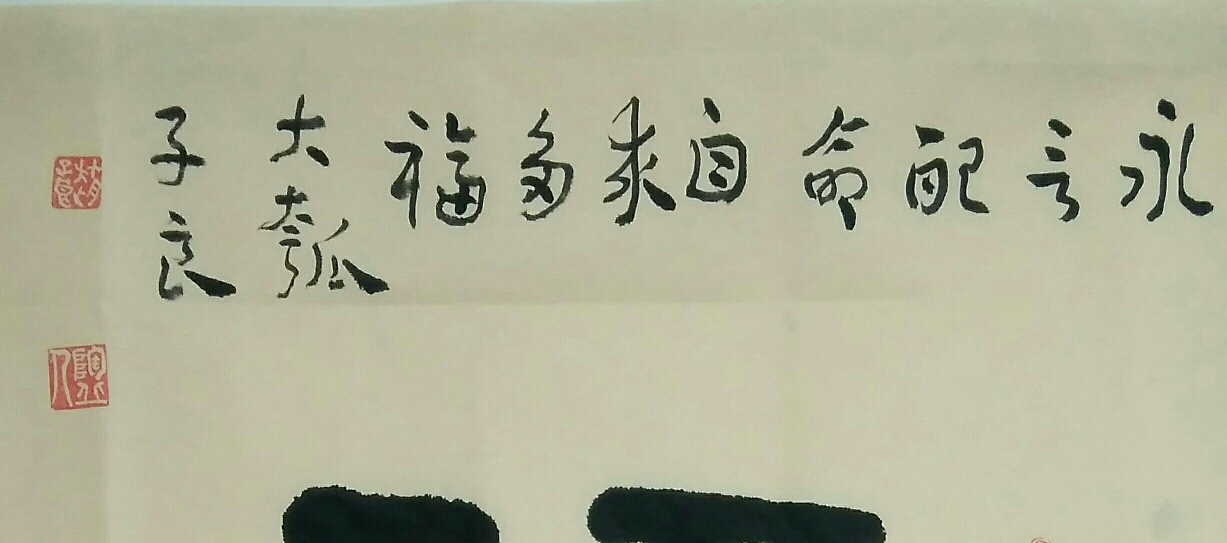 永言配命自求多福
大瓠
子良